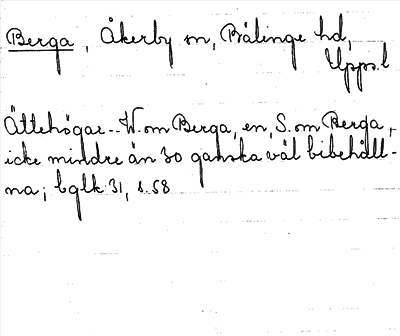 Berga, Åkerby sn, Bälinge hd,
Upps.l
Ättehögar -- W. om Berga, en, S. om Berga,
icke mindre än 30 ganska väl bibehåll-
na; bglk 31, s. 58